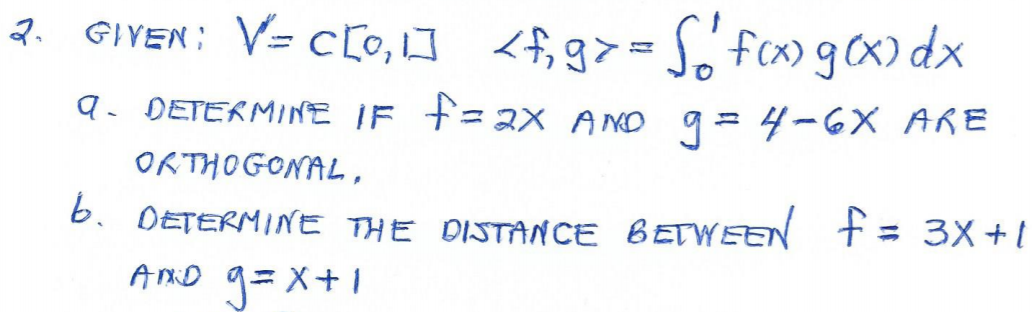 2. GIVEN: V = C[0,1] <f,g> = ∫₀¹ f(x) g(x) dx
a. DETERMINE IF f = 2x AND g = 4-6x ARE
ORTHOGONAL.
b. DETERMINE THE DISTANCE BETWEEN f = 3x+1
AND g = x+1